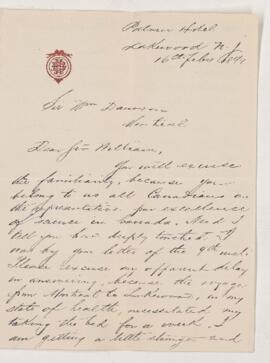 Hotel
Lakewood N.J.
16th Feby 1891
Sir Wm Dawson
Montreal
Dear Sir William,
You will excuse
the familiarity, because you
belong to us all Canadians as
the representative par excellence
of science in Canada. Need I
tell you how deeply touched I
was by your letter of the 9th inst.
Please excuse my apparent delay
in answering, because the voyage
from Montreal to Lakewood, in my
state of health, necessitated my
taking the bed for a week. I
am getting a little stronger and